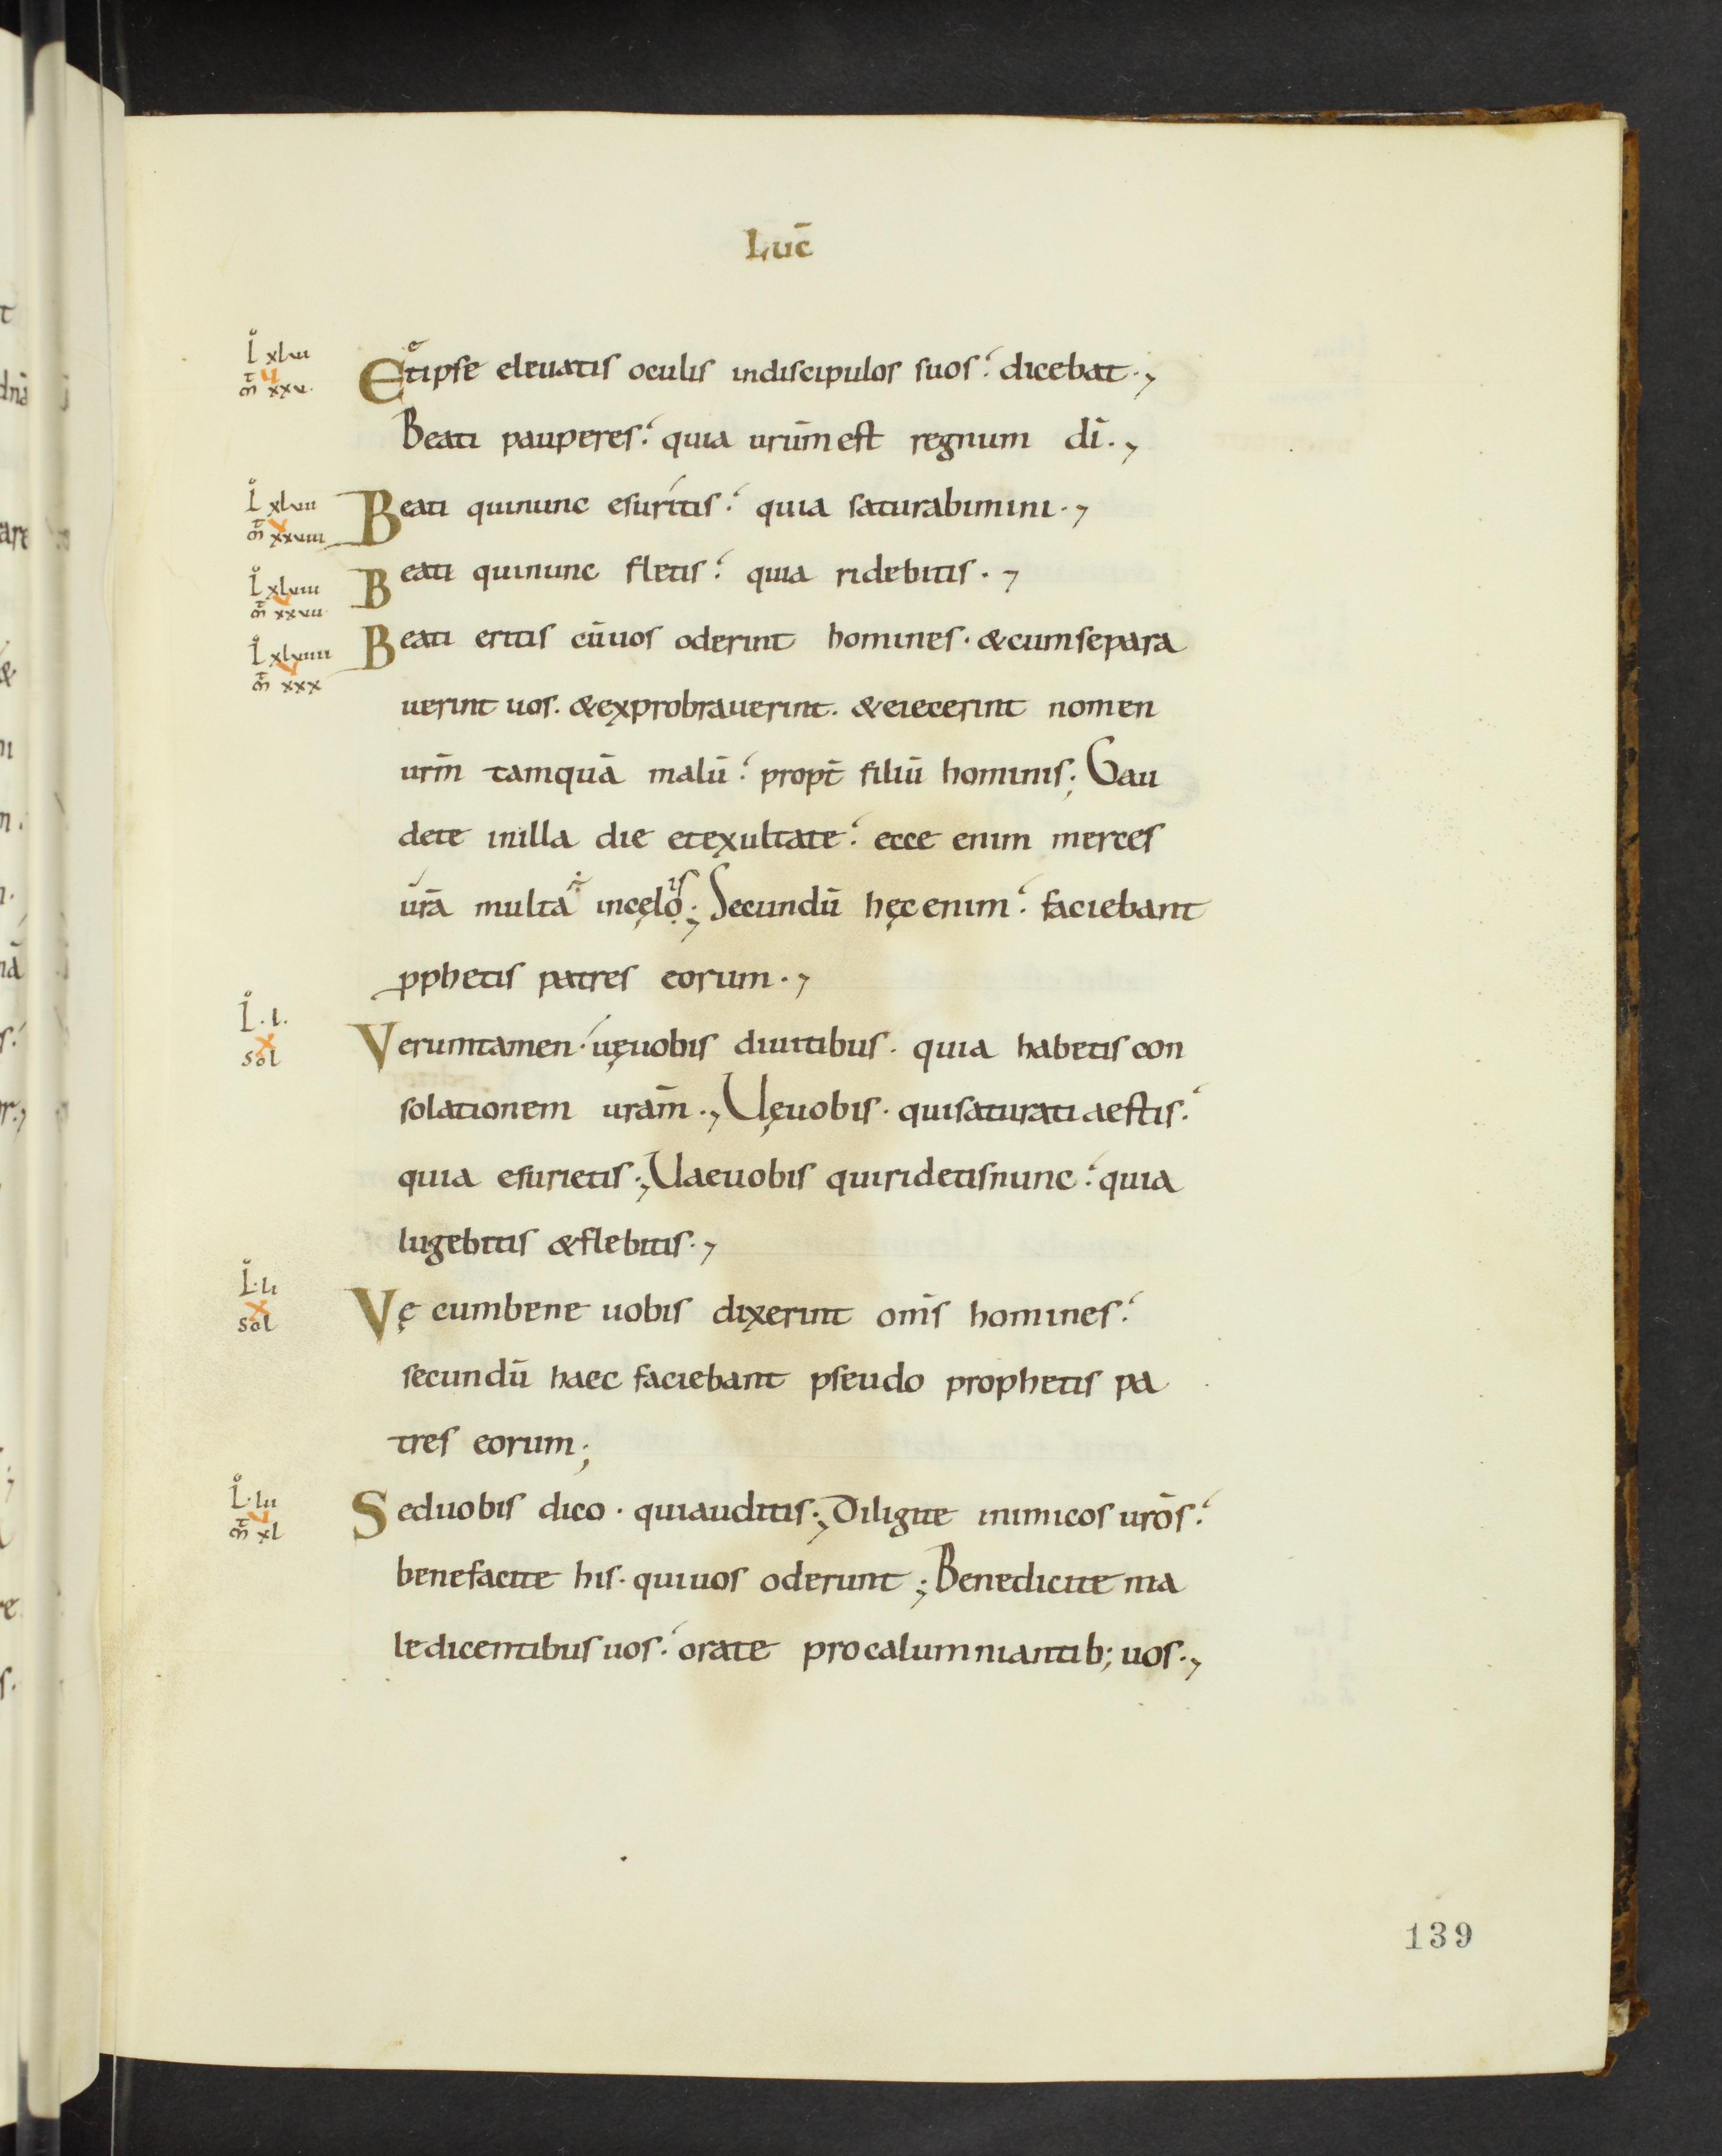 Luc̄
L̊ xlvi
m̄ xxv.
Et ipse eleuatis oculis indiscipulos suos. dicebat.,
Beati pauperes. quia urūm est regnum dī.,
L̊ xlvii
m̄ xxviii
Beati quinunc esuritis. quia saturabimini.,
L̊ xlviii
m̄ xxvii
Beati quinunc fletis. quia ridebitis.,
L̊ xlviiii
m̄ xxx
Beati eritis cūuos oderint homines. &cumsepara
uerint uos. &exprobrauerint. &eiecerint nomen
urm̄ tamquā malū. propt̄ filiū hominis; Gau
dete inilla die etexultate. ecce enim merces
ur̄a multa ÷ incęlo is; Secundū hęc enim. faciebant
ꝓphetis patres eorum.,
L̊.l.
x
sol
Verumtamen. uęuobis diuitibus. quia habetis con
solationem uram̄., Uęuobis. quisaturati aestis.
quia esurietis., Uaeuobis quiridetisnunc. quia
lugebitis &flebitis.,
L̊.li
x
sol
Vę cumbene uobis dixerint om̄s homines.
secundū haec faciebant pseudo prophetis pa
tres eorum;
L̊.lii
v
m̄ xl
Seduobis dico. quiauditis., Diligite inimicos urōs.
benefacite his. quiuos oderunt; Benedicite ma
ledicentibus uos. orate procalumniantib; uos.,
139